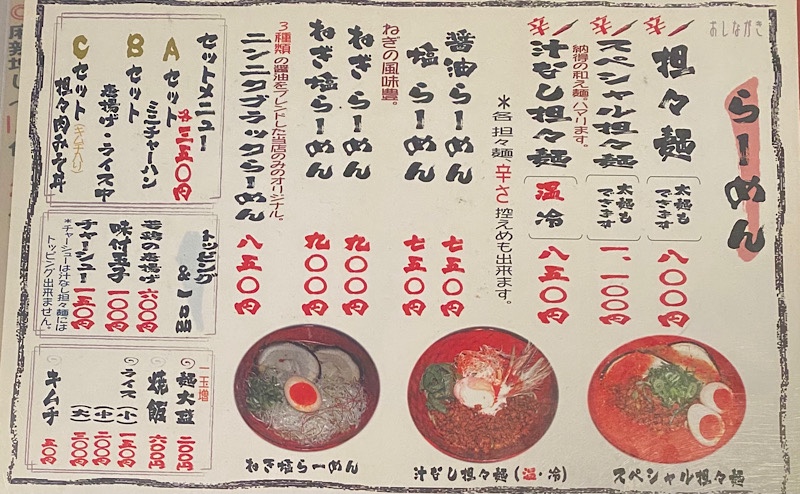 らーめん
あしながき
担々麺
太麺も
できます
八〇〇円
スペシャル担々麺
太麺も
できます
一、一〇〇円
納得の和え麺、ハマります。
汁なし担々麺
温
冷
八五〇円
＊各 担々麺、辛さ 控えめも出来ます。
醤油らーめん
七五〇円
塩らーめん
七五〇円
ねぎの風味豊。
ねぎらーめん
九〇〇円
ねぎ塩らーめん
九〇〇円
3種類の醤油をブレンドした当店のみのオリジナル。
ニンニクブラックらーめん
八五〇円
セットメニュー
各三五〇円
Aセット
ミニチャーハン
Bセット
唐揚げ・ライス中
Cセット(キムチ入り)
担々肉みそ丼
トッピング
&一品
若鶏の唐揚げ
六〇〇円
味付玉子
一〇〇円
チャーシュー
一五〇円
＊チャーシューは汁なし担々麺には
トッピング出来ません。
一玉増
麺大盛
二〇〇円
焼飯
六〇〇円
ライス(小)
一五〇円
(中)
二〇〇円
(大)
三〇〇円
キムチ
スペシャル担々麺
汁なし担々麺(温・冷)
ねぎ塩らーめん